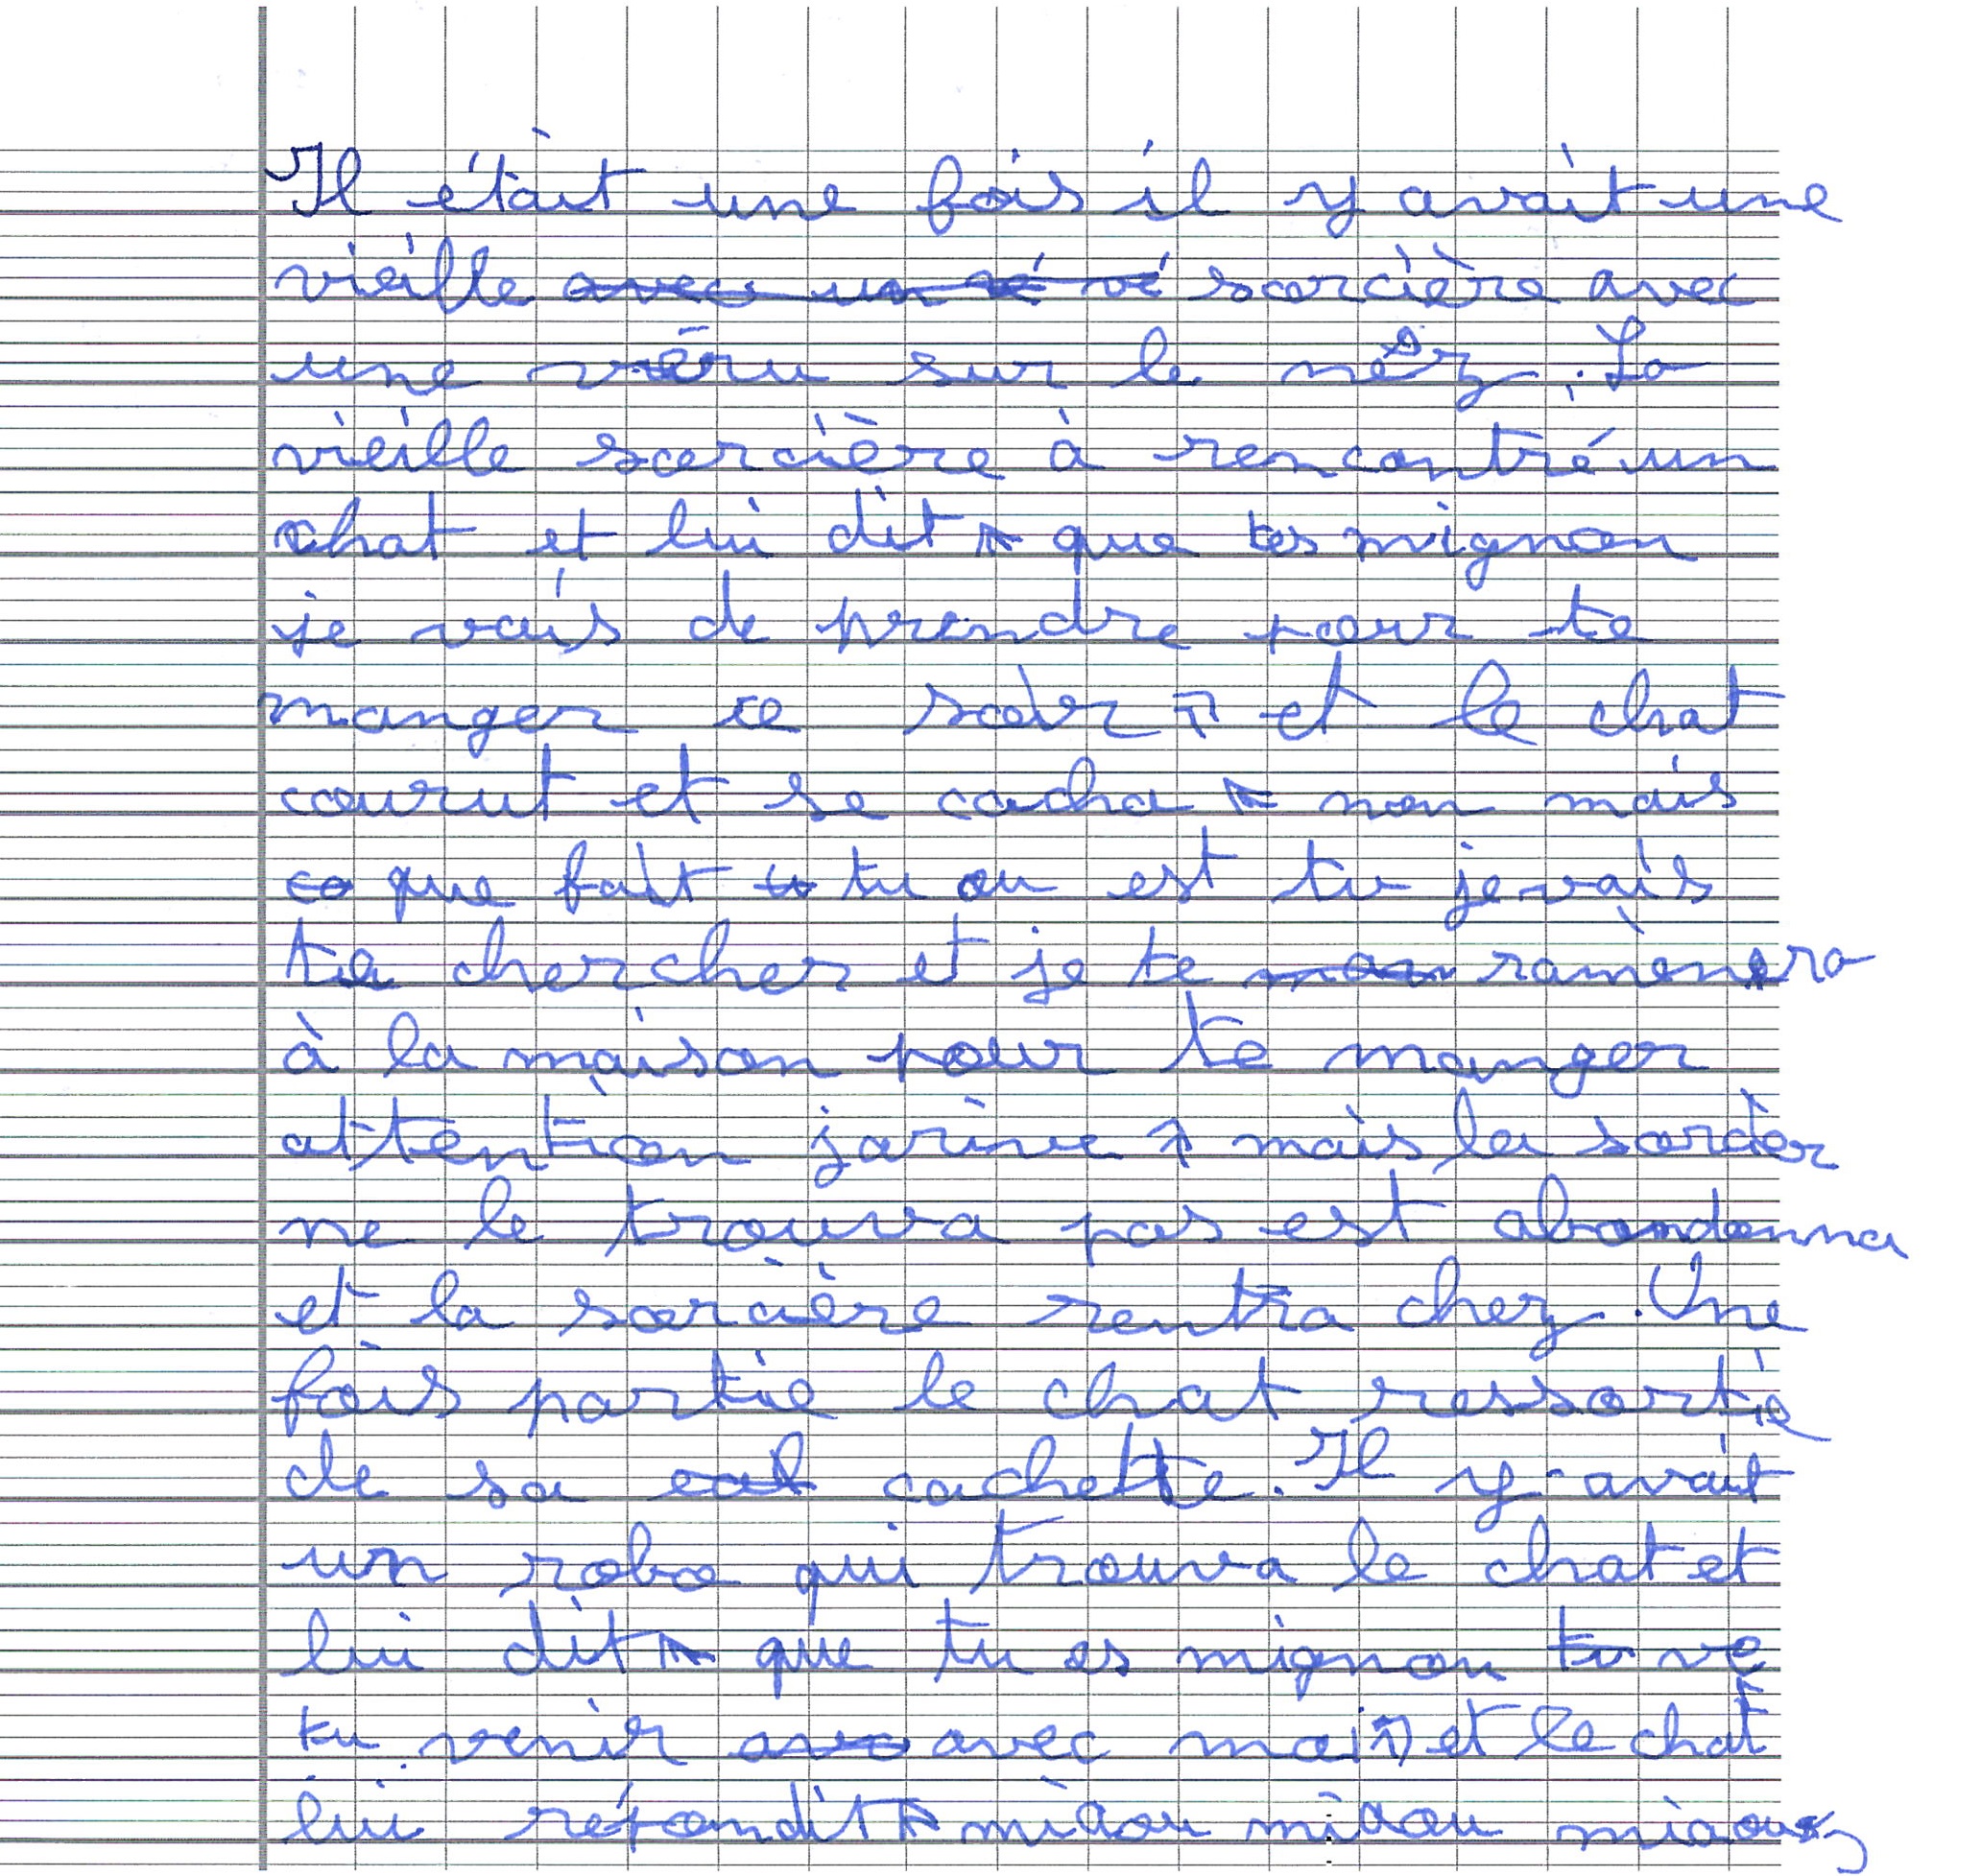 Il était une fois il y avait une
vieille avec un vé vé sorcière avec
une véru sur le nêz. La
vieille sorcière à rencontré un
chat et lui dit " que tes mignon
je vais de prendre pour te
manger ce soir " et le chat
courut et se cacha " non mais
ce que fait tu tu ou est tu je vais
te chercher et je te man ramènera
à la maison pour te manger
attention jarive " mais la sorcièr
ne le trouva pas est abandonna
et la sorcière rentra chez. Une
fois partie le chat ressortie
de sa cat cachette. Il y avait
un robo qui trouva le chat et
lui dit " que tu es mignon tu ve
tu venir ave avec moi " et le chat
lui répondit " miaou miaou miaou "